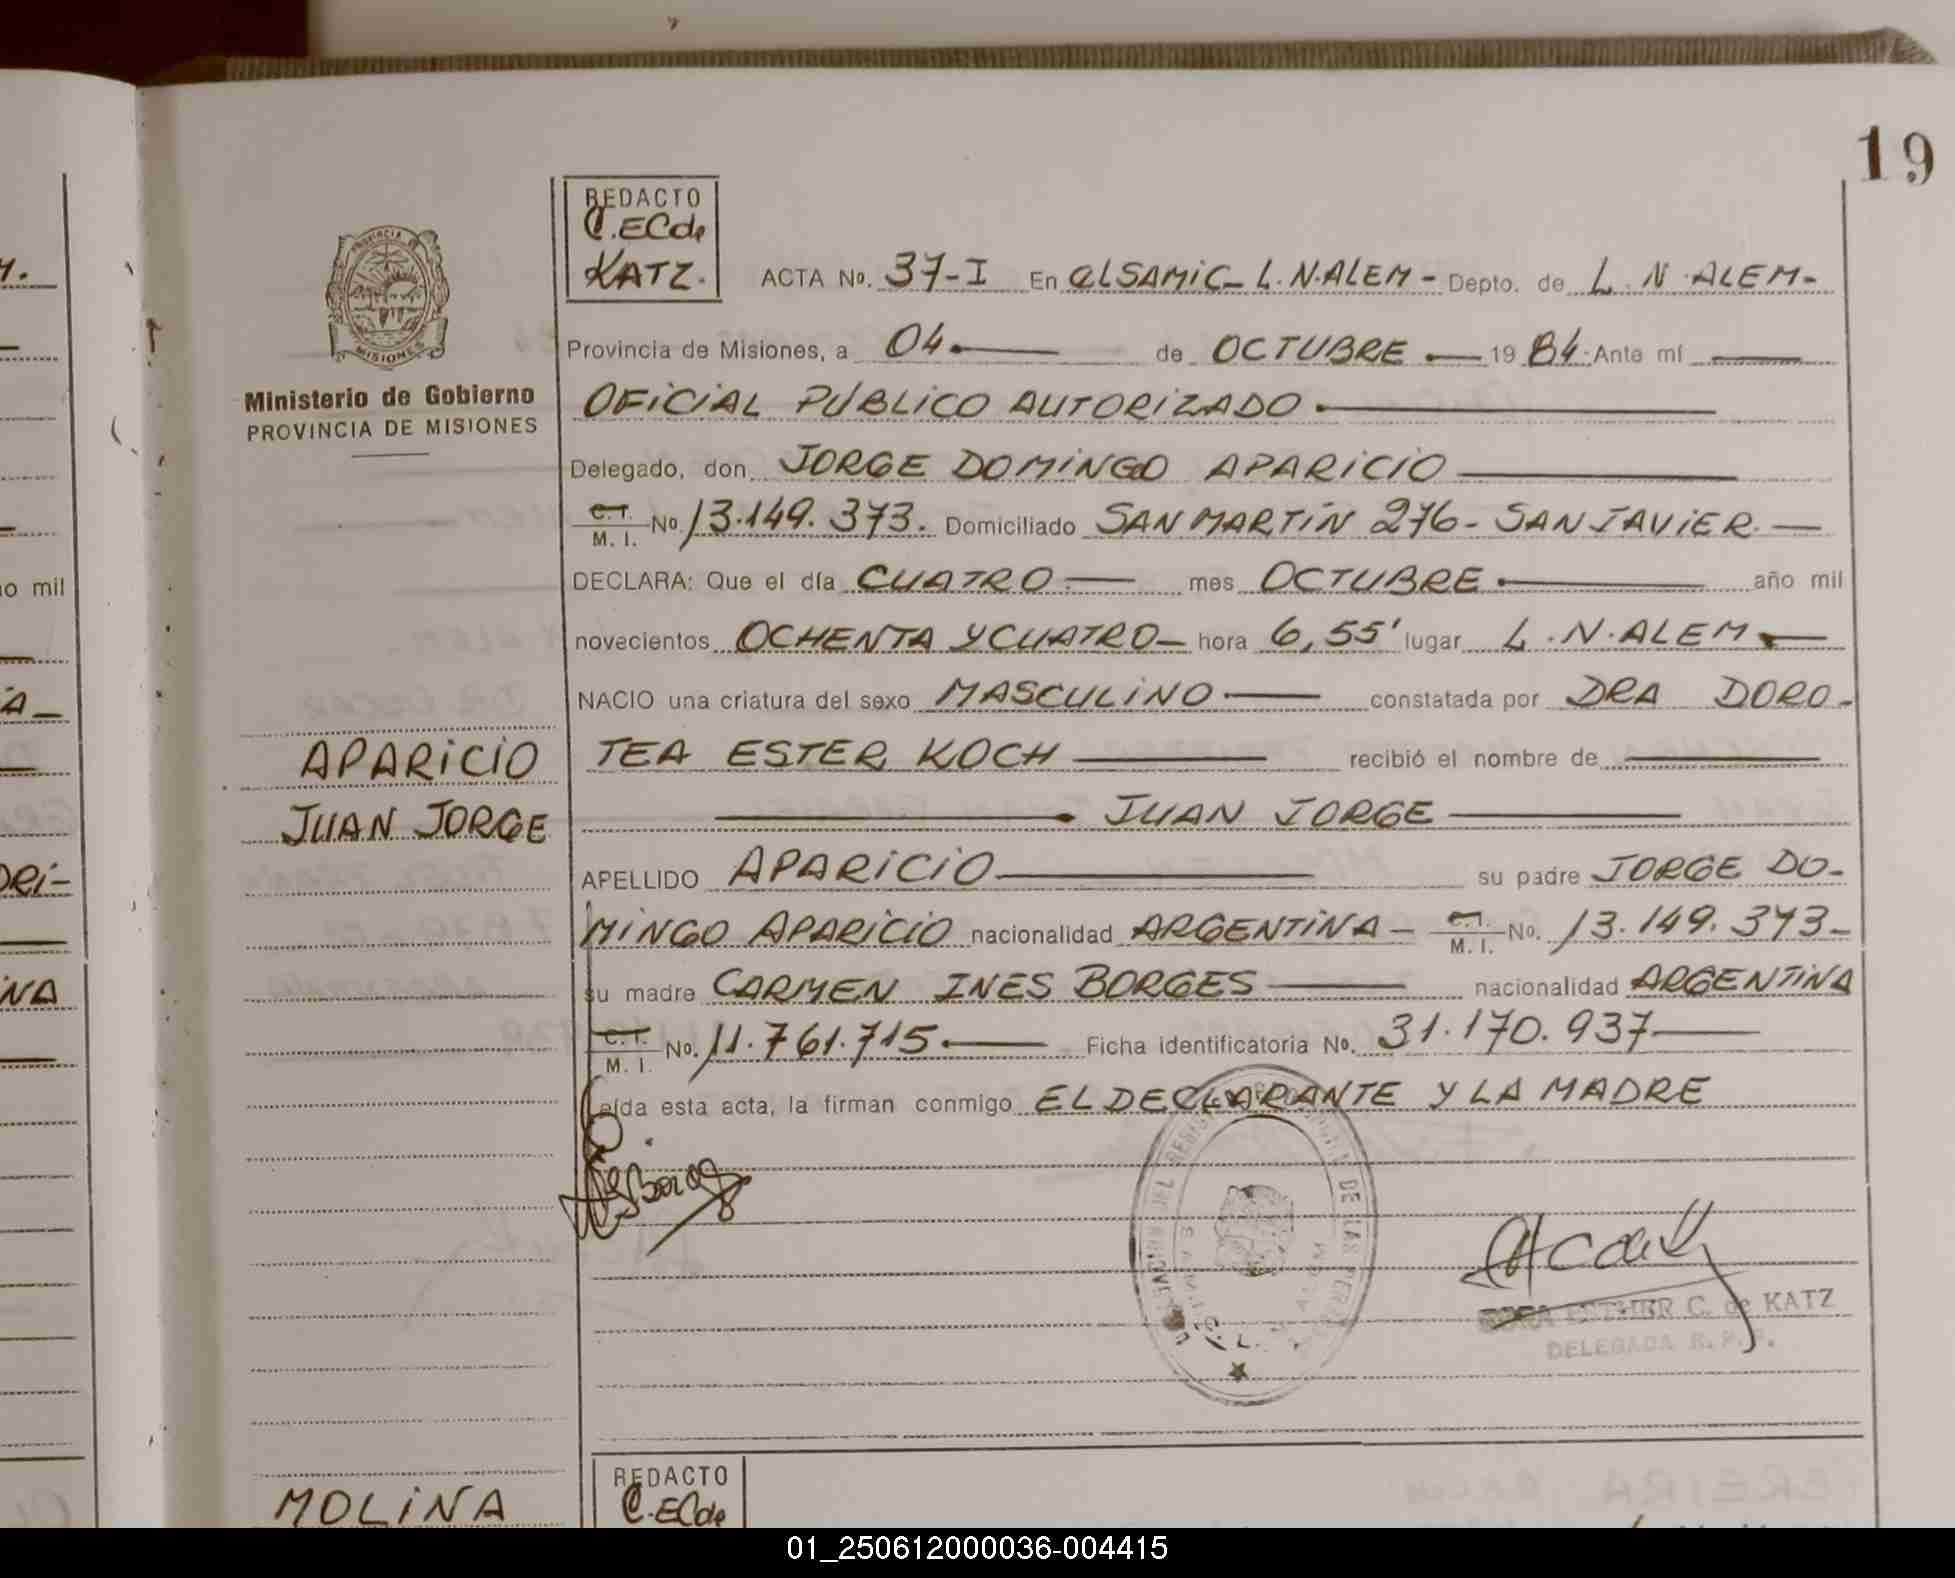 19
REDACTO
C.ECde
KATZ.
PROVINCIA DE
MISIONES
Ministerio de Gobierno
PROVINCIA DE MISIONES
ACTA No. 37-I En ALSAMIC- L.N.ALEM- Depto. de L.N.ALEM-
Provincia de Misiones, a 04. de OCTUBRE. 1984. Ante mí
OFICIAL PÚBLICO AUTORIZADO.
Delegado, don JORGE DOMINGO APARICIO
C.I.
M. I. No. 13.149.373. Domiciliado SAN MARTÍN 276- SAN JAVIER.
DECLARA: Que el día CUATRO mes OCTUBRE. año mil
novecientos OCHENTA Y CUATRO- hora 6,55' lugar L.N.ALEM
NACIO una criatura del sexo MASCULINO constatada por DRA DORO-
APARICIO
TEA ESTER KOCH recibió el nombre de
JUAN JORGE
JUAN JORGE
APELLIDO APARICIO su padre JORGE DO-
MINGO APARICIO nacionalidad ARGENTINA- C.I.
M. I. No. 13.149.373-
su madre CARMEN INES BORGES nacionalidad ARGENTINA
C.I.
M. I. No. 11.761.715. Ficha identificatoria No. 31.170.937
Leída esta acta, la firman conmigo EL DECLARANTE Y LA MADRE
ESTHER C. de KATZ
DELEGADA R.P.P.
REDACTO
C.ECde
MOLINA
o mil
ORI-
NA
01_250612000036-004415